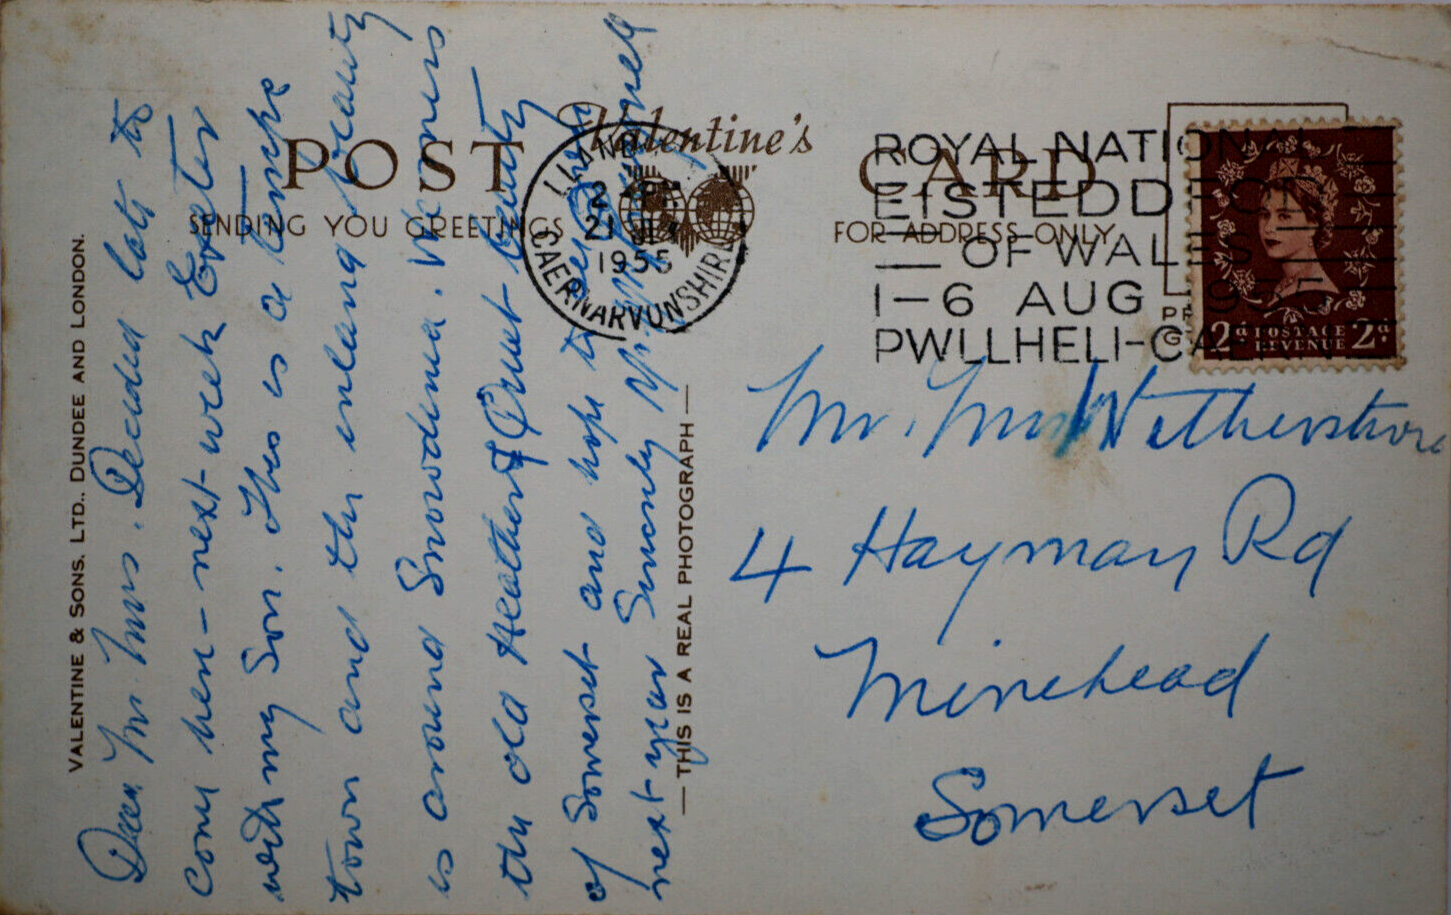 VALENTINE & SONS. LTD., DUNDEE AND LONDON.
POST CARD
Valentine's
SENDING YOU GREETINGS
FOR ADDRESS ONLY
CAERNARVONSHIRE
21
1955
ROYAL NATIONAL
EISTEDDFOD
— OF WALES —
1–6 AUG
PWLLHELI-
2d POSTAGE 2d
REVENUE
— THIS IS A REAL PHOTOGRAPH —
Dear Mr Mrs. Decided late to
come here – next week Exeter
with my Son. This is a
town and the inland beauty
is around Snowdonia.
the old Heather & Quiet beauty
of Somerset and hope to
next year Sincerely
Mr. Mrs
4 Hayman Rd
Minehead
Somerset